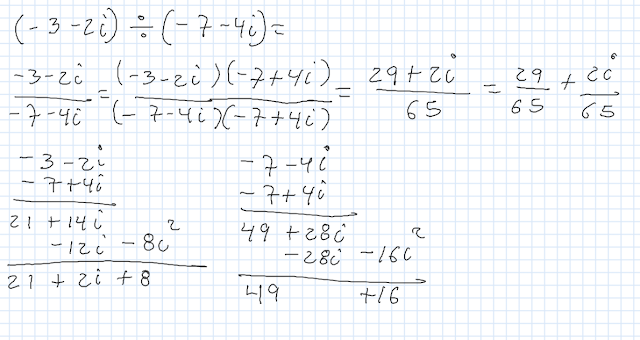 (-3-2i) ÷ (-7-4i) =
-3-2i / -7-4i = (-3-2i)(-7+4i) / (-7-4i)(-7+4i) = 29+2i / 65 = 29/65 + 2i/65
-3-2i
-7+4i
21+14i
-12i-8i²
21+2i+8
-7-4i
-7+4i
49+28i
-28i-16i²
49 +16